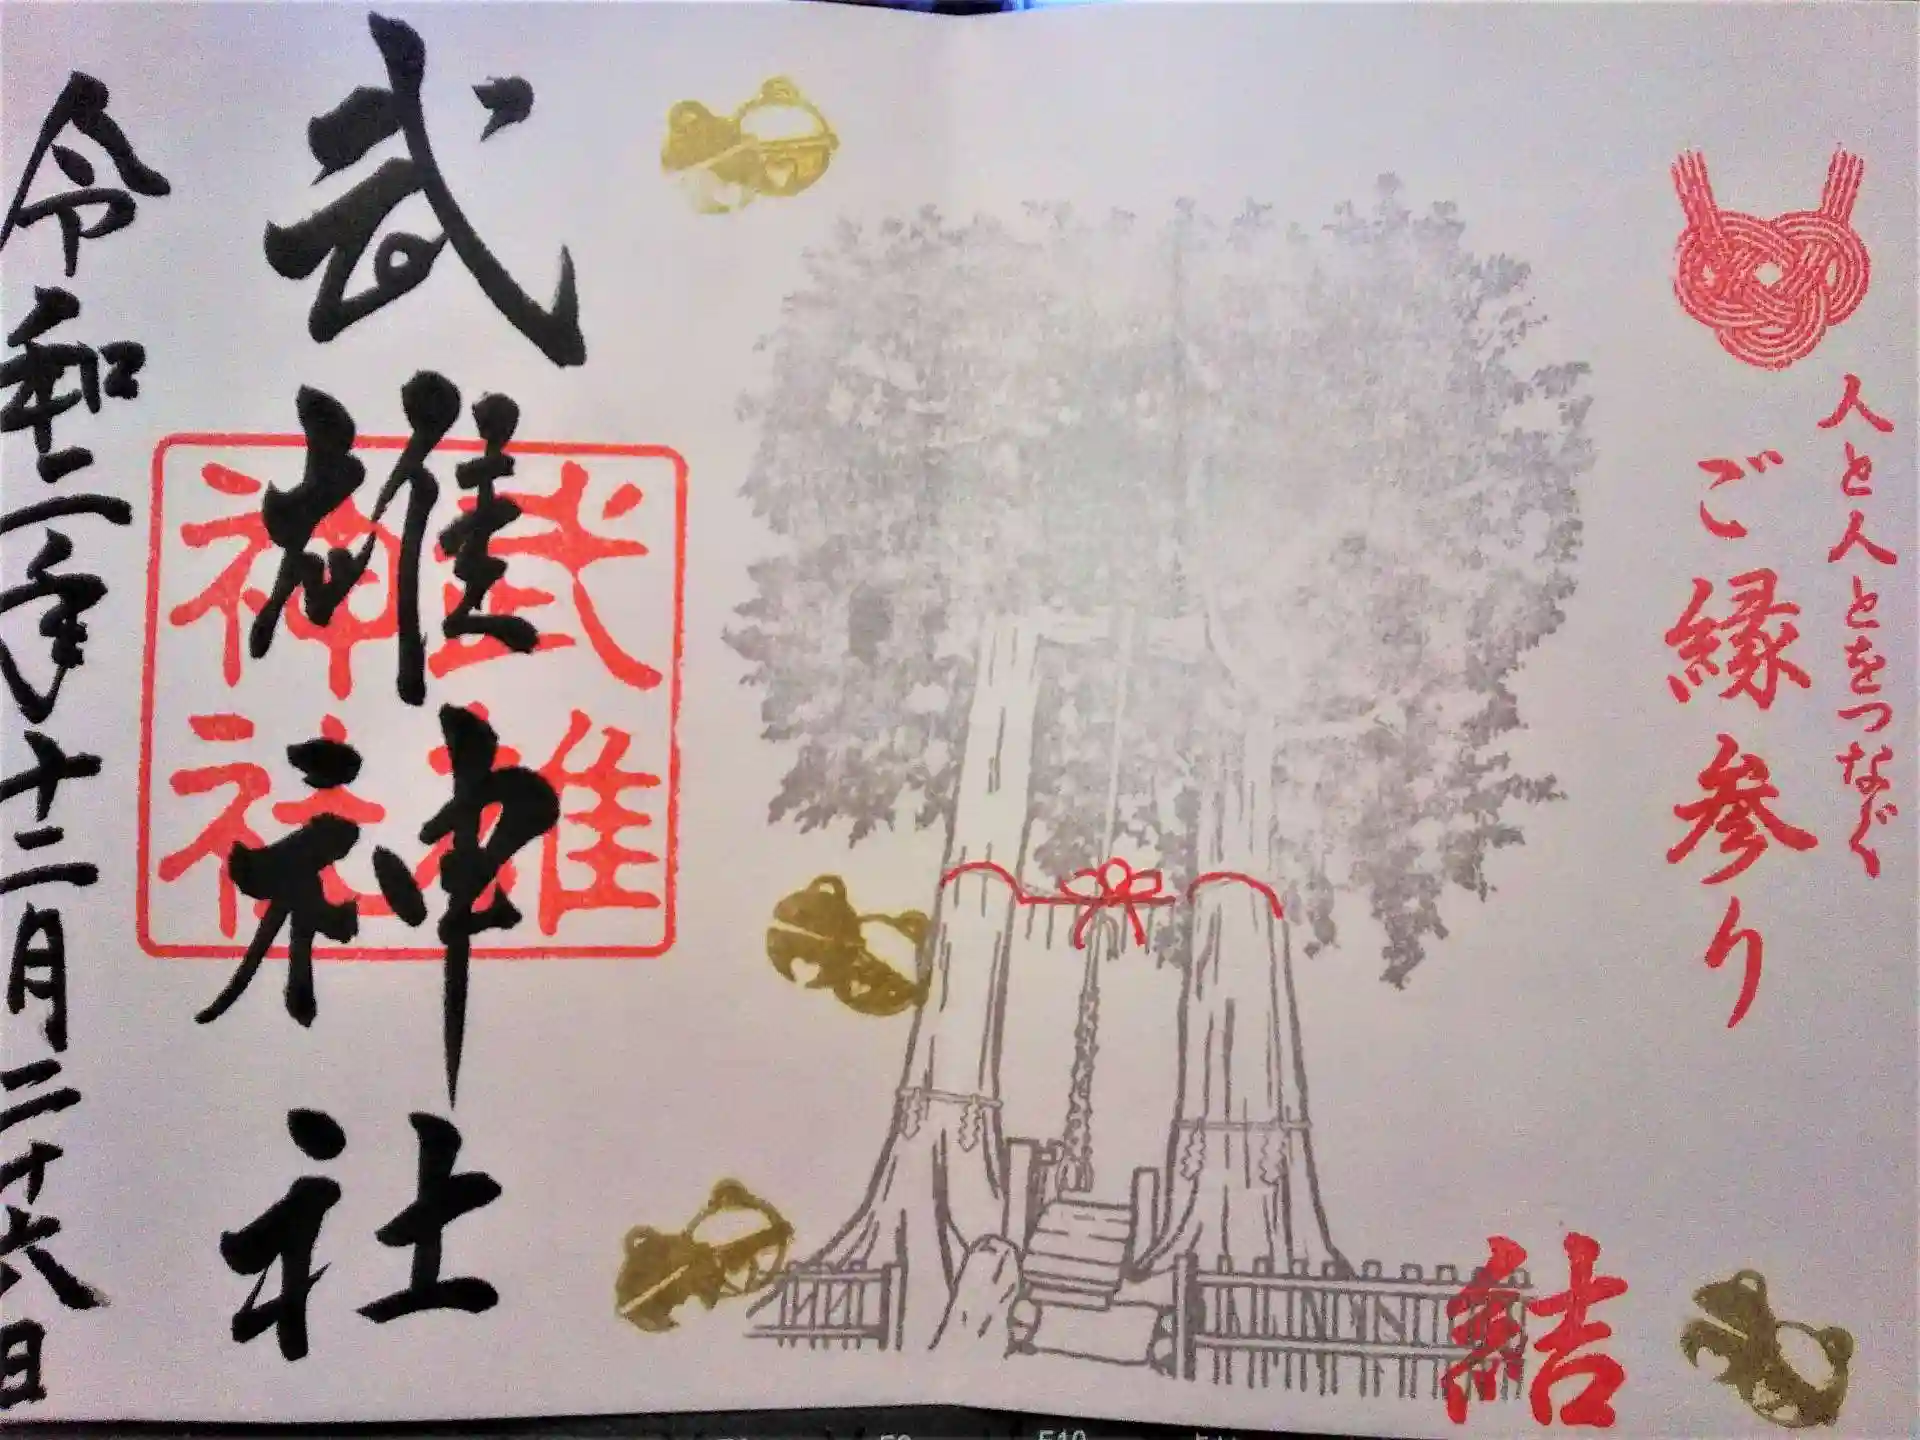 人と人とをつなぐ
ご縁参り
結
武雄神社
武雄
神社
令和二年十二月二十六日
F10